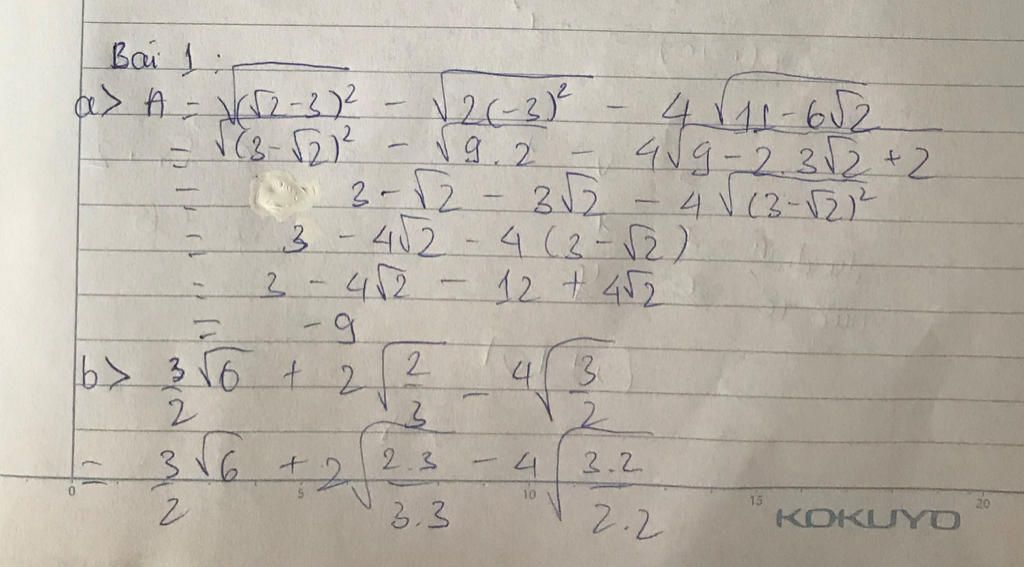 Bài 1 :
a> A = √(√2-3)² - √2(-3)² - 4√11-6√2
= √(3-√2)² - √9.2 - 4√9-2.3√2+2
= 3-√2 - 3√2 - 4√(3-√2)²
= 3 - 4√2 - 4(3-√2)
= 3 - 4√2 - 12 + 4√2
= -9
b> 3/2 √6 + 2√2/3 - 4√3/2
= 3/2 √6 + 2√2.3/3.3 - 4√3.2/2.2
0 5 10 15 20
KOKUYO